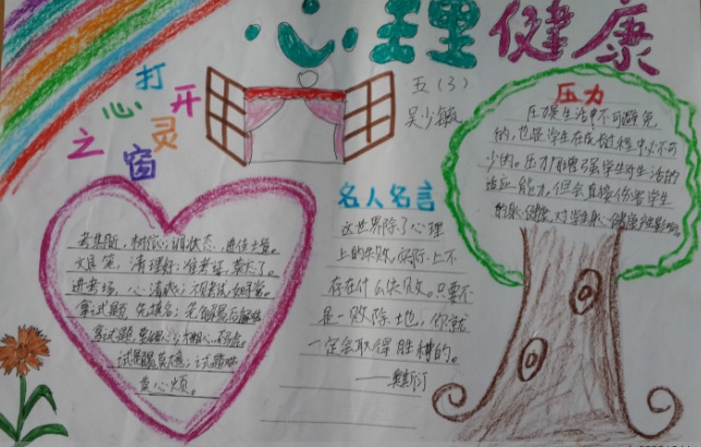 心理健康
打开
心灵
之窗
五(3)
吴少敏
压力
压力是生活中不可避免
的,也是学生在成长过程中必不可
少的。压力能增强学生对生活的
适应能力,但会直接伤害学生
的身心健康,对学生身心健康产生影响。
名人名言
这世界除了心理
上的失败,实际上不
存在什么失败。只要不
是一败涂地,你就
一定会取得胜利的。
——奥斯汀
考集前,树信心,调状态,进佳境。
文具笔,清理好;准考证,莫忘了。
进考场,心清静;
拿试题,先填名;
试题易,莫大意;试题难
莫心烦。